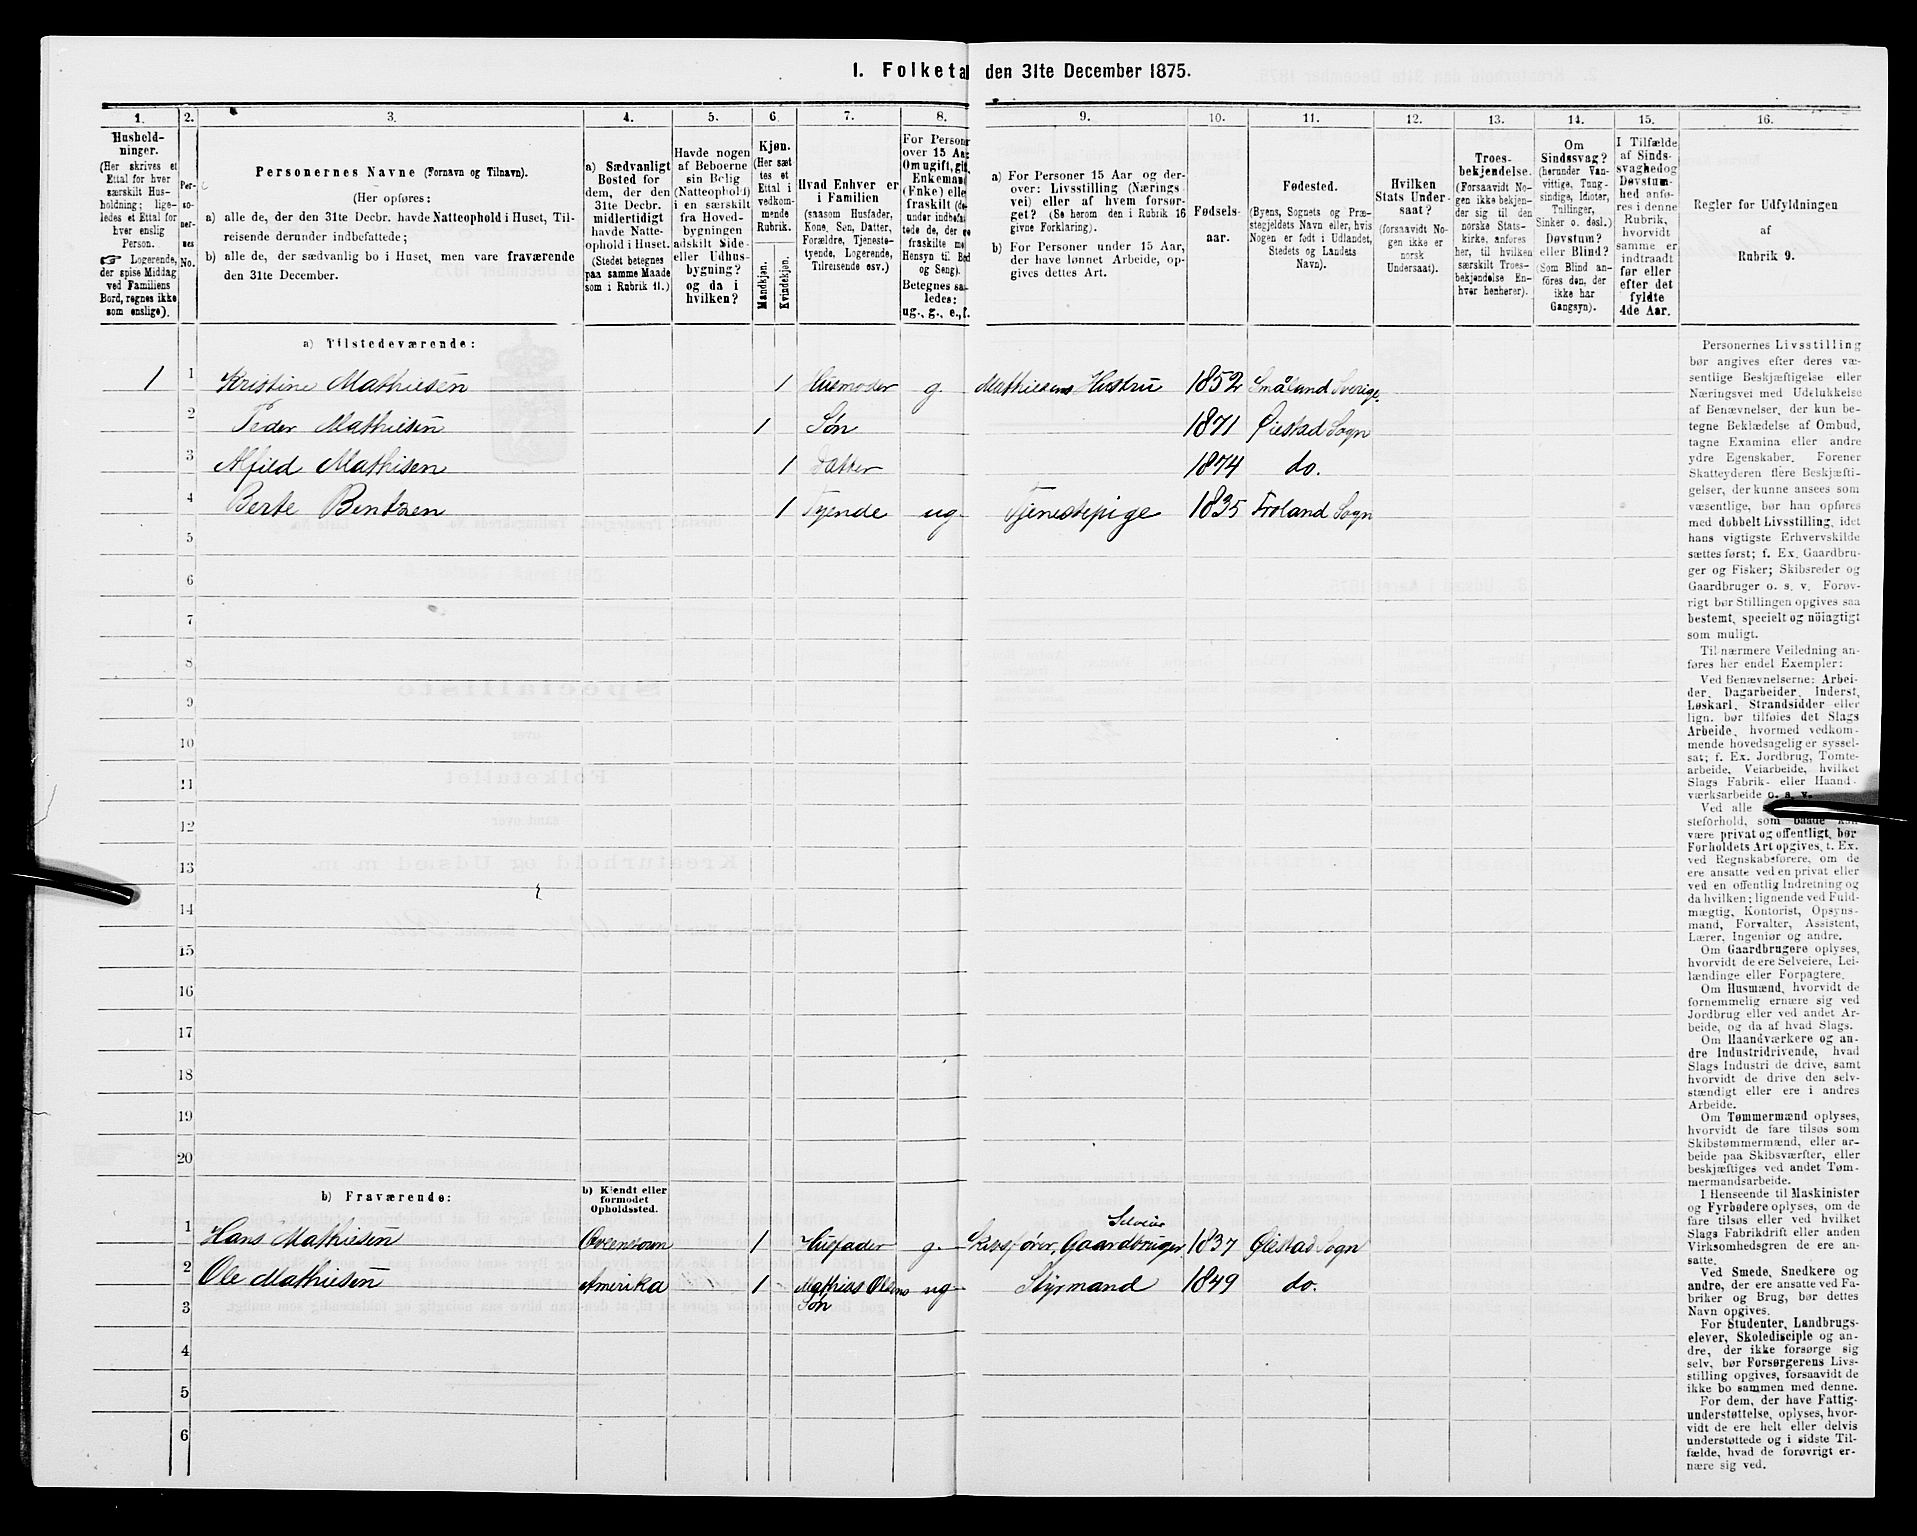 1. Folketal den 31te December 1875.
1. 2. 3. 4. 5. 6. 7. 8. 9. 10. 11. 12. 13. 14. 15. 16.
Husholdninger.
(Her skrives et
Ettal for hver
særskilt Husholdning;
ligeledes et Ettal for
hver enslig
Person.
☞ Logerende,
der spise Middag
ved Familiens
Bord, regnes ikke
som enslige).
Personernes
No.
Personernes Navne (Fornavn og Tilnavn).
(Her opføres:
a) alle de, der den 31te Decbr. havde Natteophold i Huset, Tilreisende derunder indbefattede;
b) alle de, der sædvanlig bo i Huset, men vare fraværende
den 31te December.
a) Sædvanligt
Bosted for
dem, der den
31te Decbr.
midlertidigt
havde Natteophold i Huset.
(Stedet betegnes
paa samme Maade
som i Rubrik 11.)
Havde nogen
af Beboerne
sin Bolig
(Natteophold)
i en særskilt
fra Hovedbygningen
adskilt Side-
eller Udhusbygning?
og da i
hvilken?
Kjøn.
(Her sættes et
Ettal i
vedkommende
Rubrik.
Mandkjøn.
Kvindekjøn.
Hvad Enhver er
i Familien
(saasom Husfader,
Kone, Søn, Datter,
Forældre, Tjenestetyende, Logerende,
Tilreisende osv.)
For Person
over 15 Aar
Omugift, gift
Enkemand
(Enke) eller
fraskilt
Betegnes saaledes:
ug., g., e., f.
a) For Personer 15 Aar og derover: Livsstilling (Næringsvei) eller af hvem forsørget? (Se herom den i Rubrik 16
givne Forklaring).
b) For Personer under 15 Aar,
der have lønnet Arbeide, opgives dettes Art.
Fødselsaar.
Fødested.
(Byens, Sognets og Præstegjeldets Navn eller, hvis
Nogen er født i Udlandet,
Stedets og Landets
Navn).
Hvilken
Stats Undersaat?
(forsaavidt Nogen ikke er
norsk
Undersaat).
Troesbekjendelse.
(Forsaavidt Nogen ikke bekjender sig til den
norske Statskirke, anføres
her, til hvilken
særskilt Troesbekjendelse Enhver henhører).
Om
Sindssvag?
(herunder Vanvittige, Tungsindige, Idioter,
Tullinger,
Sinker o. desl.)
Døvstum?
eller Blind?
(Som Blind anføres den, der
ikke har
Gangsyn).
I Tilfælde
af Sindssvaghed og
Døvstumhed anføres i denne
Rubrik,
hvorvidt
samme er
indtraadt
før eller
efter det
fyldte
4de Aar.
Regler for Udfyldningen
af
Rubrik 9.
a) Tilstedeværende:
1 1 Kristine Mathiesen 1 Husmoder g. Mathiesens Hustru 1852 Småland Sverige.
2 Peder Mathiesen 1 Søn 1871 Øiestad Sogn
3 Alfild Mathisen 1 Datter 1874 do.
4 Berte Bentsen 1 Tyende ug. Tjenestepige 1835 Froland Sogn
5
6
7
8
9
10
11
12
13
14
15
16
17
18
19
20
b) Fraværende:
b) Kjendt eller
formodet
Opholdssted.
Selveier
1 Hans Mathiesen 1 Husfader g. Skibsfører, Gaardbruger 1837 Øiestad Sogn
2 Ole Mathiesen Amerika 1 Mathias Olsens ug Styrmand 1849 do.
3 Søn
4
5
6
Personernes Livsstilling
bør angives efter deres væsentlige Beskjæftigelse eller
Næringsvei med Udelukkelse
af Benævnelser, der kun betegne Beklædelse af Ombud,
tagne Examina eller andre
ydre Egenskaber. Forener
Skatteyderen flere Beskjæftigelser, der kunne ansees som
væsentlige, bør han opføres
med dobbelt Livsstilling, idet
hans vigtigste Erhvervskilde
sættes først; f. Ex. Gaardbruger og Fisker; Skibsreder og
Gaardbruger o. s. v. Forøvrigt bør Stillingen opgives saa
bestemt, specielt og nöiagtigt
som muligt.
Til nærmere Veiledning anføres her endel Exempler:
Ved Benævnelserne: Arbeider, Dagarbeider, Inderst,
Løskarl, Strandsidder eller
lign. bør tilføies det Slags
Arbeide, hvormed vedkommende hovedsagelig er sysselsat; f. Ex. Jordbrug, Tomtearbeide, Veiarbeide, hvilket
Slags Fabrik- eller Haandværksarbeide o. s. v.
Ved alle
steforhold, som baade
være privat og offentligt, bør
Forholdets Art opgives, t. Ex.
ved Regnskabsførere, om de
ere ansatte ved en privat eller
ved en offentlig Indretning og
da hvilken; lignende ved Fuldmægtig, Kontorist, Opsynsmand, Forvalter, Assistent,
Lærer, Ingeniør og andre.
Om Gaardbrugere oplyses,
hvorvidt de ere Selveiere, Leilændinge eller Forpagtere.
Om Husmænd, hvorvidt de
fornemmelig ernære sig ved
Jordbrug eller ved andet Arbeide, og da af hvad Slags.
Om Haandværkere og andre Industridrivende, hvad
Slags Industri de drive, samt
hvorvidt de drive den selvstændigt eller ere i andres
Arbeide.
Om Tømmermænd oplyses,
hvorvidt de fare tilsøs som
Skibstømmermænd, eller arbeide paa Skibsværfter, eller
beskjæftiges ved andet Tømmermandsarbeide.
I Henseende til Maskinister
og Fyrbødere oplyses, om de
fare tilsøs eller ved hvilket
Slags Fabrikdrift eller anden
Virksomhedsgren de ere ansatte.
Ved Smede, Snedkere og
andre, der ere ansatte ved Fabriker og Brug, bør dettes
Navn opgives.
For Studenter, Landbrugselever, Skoledisciple og andre, der ikke forsørge sig
selv, bør Forsørgerens Livsstilling opgives, forsaavidt de
ikke bo sammen med denne.
For dem, der have Fattigunderstøttelse, oplyses, hvorvidt de ere helt eller delvis
understøttede og i sidste Tilfælde, hvad de forøvrigt ernære sig ved.